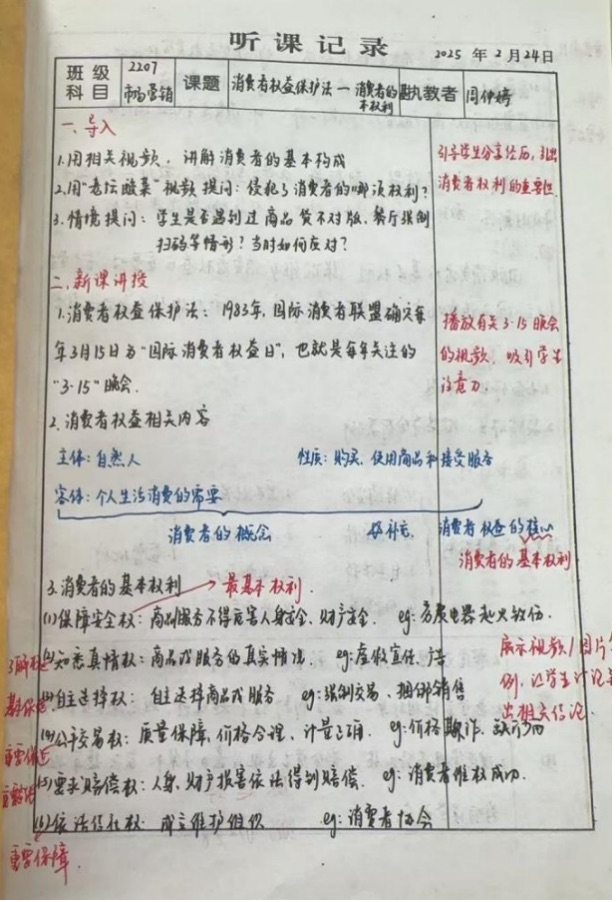 听课记录
2025 年 2 月 24 日
班级 科目 2207 市场营销 课题 消费者权益保护法—消费者的基本权利 执教者 闫伊婷
一、导入
1.用相关视频,讲解消费者的基本构成
2.用“老坛酸菜”视频提问:侵犯了消费者的哪项权利?
3.情境提问:学生是否遇到过商品货不对版、餐厅强制
扫码等情形?当时如何应对?
引导学生分享经历,引出
消费者权利的重要性
二、新课讲授
1.消费者权益保护法:1983年,国际消费者联盟确定每
年3月15日为“国际消费者权益日”,也就是每年关注的
“3·15”晚会.
播放有关3·15晚会
的视频,吸引学生
注意力.
2.消费者权益相关内容
主体:自然人 性质:购买、使用商品和接受服务
客体:个人生活消费的需要
消费者的概念 好补充. 消费者权益的核心
消费者的基本权利
3.消费者的基本权利 → 最基本权利.
(1)保障安全权:商品服务不得危害人身安全、财产安全. eg:劣质电器起火致伤.
(2)知悉真情权:商品或服务的真实情况. eg:虚假宣传、
(3)自主选择权:自主选择商品或服务 eg:强制交易、捆绑销售
(4)公平交易权:质量保障、价格合理、计量正确. eg:价格欺诈、缺斤少两
(5)要求赔偿权:人身、财产损害依法得到赔偿. eg:消费者维权成功.
(6)依法结社权:成立维护组织 eg:消费者协会
展示视频/图片
例,让学生讨论
出相关结论.
重要保障.